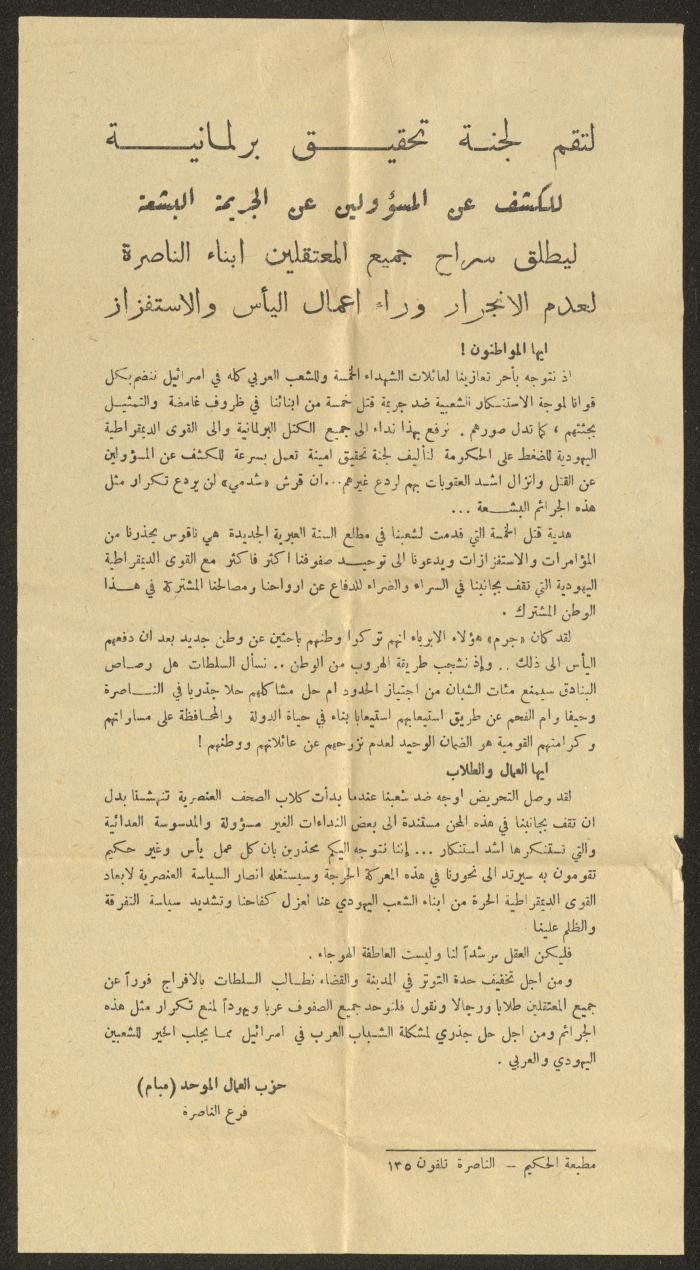 لتقم لجنة تحقيق برلمانية
للكشف عن المسؤولين عن الجريمة البشعة
ليطلق سراح جميع المعتقلين ابناء الناصرة
لعدم الانجرار وراء اعمال اليأس والاستفزاز
ايها المواطنون !
اذ نتوجه بأحر تعازينا لعائلات الشهداء الخمسة وللشعب العربي كله في اسرائيل ننضم بكل
قوانا لموجة الاستنكار الشعبية ضد جريمة قتل خمسة من ابنائنا في ظروف غامضة والتمثيل
بجثثهم ، كما تدل صورهم . نرفع بهذا نداء الى جميع الكتل البرلمانية والى القوى الديمقراطية
اليهودية للضغط على الحكومة لتأليف لجنة تحقيق امينة تعمل بسرعة للكشف عن المسؤولين
عن القتل وانزال اشد العقوبات بهم لردع غيرهم...ان قرش «شدمي» لن يردع تكرار مثل
هذه الجرائم البشعة ...
هدية قتل الخمسة التي قدمت لشعبنا في مطلع السنة العبرية الجديدة هي ناقوس يحذرنا من
المؤامرات والاستفزازات ويدعونا الى توحيد صفوفنا اكثر فاكثر مع القوى الديمقراطية
اليهودية التي تقف بجانبنا في السراء والضراء للدفاع عن ارواحنا ومصالحنا المشتركة في هذا
الوطن المشترك .
لقد كان «جرم» هؤلاء الابرياء انهم تركوا وطنهم باحثين عن وطن جديد بعد ان دفعهم
اليأس الى ذلك .. وإذ نشجب طريقة الهروب من الوطن .. نسأل السلطات هل رصاص
البنادق سيمنع مئات الشبان من اجتياز الحدود ام حل مشاكلهم حلا جذريا في الناصرة
وحيفا وام الفحم عن طريق استيعابهم استيعابا بناء في حياة الدولة والمحافظة على مساواتهم
وكرامتهم القومية هو الضمان الوحيد لعدم نزوحهم عن عائلاتهم ووطنهم !
ايها العمال والطلاب
لقد وصل التحريض اوجه ضد شعبنا عندما بدأت كلاب الصحف العنصرية تنهشنا بدل
ان تقف بجانبنا في هذه المحن مستندة الى بعض النداءات الغير مسؤولة والمدسوسة العدائية
والتي نستنكرها اشد استنكار ... إننا نتوجه اليكم محذرين بان كل عمل يأس وغير حكيم
تقومون به سيرتد الى نحورنا في هذه المعركة الحرجة وسيستغله انصار السياسة العنصرية لابعاد
القوى الديمقراطية الحرة من ابناء الشعب اليهودي عنا لعزل كفاحنا وتشديد سياسة التفرقة
والظلم علينا
فليكن العقل مرشداً لنا وليست العاطفة الهوجاء .
ومن اجل تخفيف حدة التوتر في المدينة والقضاء نطالب السلطات بالافراج فوراً عن
جميع المعتقلين طلابا ورجالا ونقول فلنوحد جميع الصفوف عربا ويهوداً لمنع تكرار مثل هذه
الجرائم ومن اجل حل جذري لمشكلة الشباب العرب في اسرائيل مما يجلب الخير للشعبين
اليهودي والعربي .
حزب العمال الموحد (مبام)
فرع الناصرة
مطبعة الحكيم – الناصرة تلفون ١٣٥